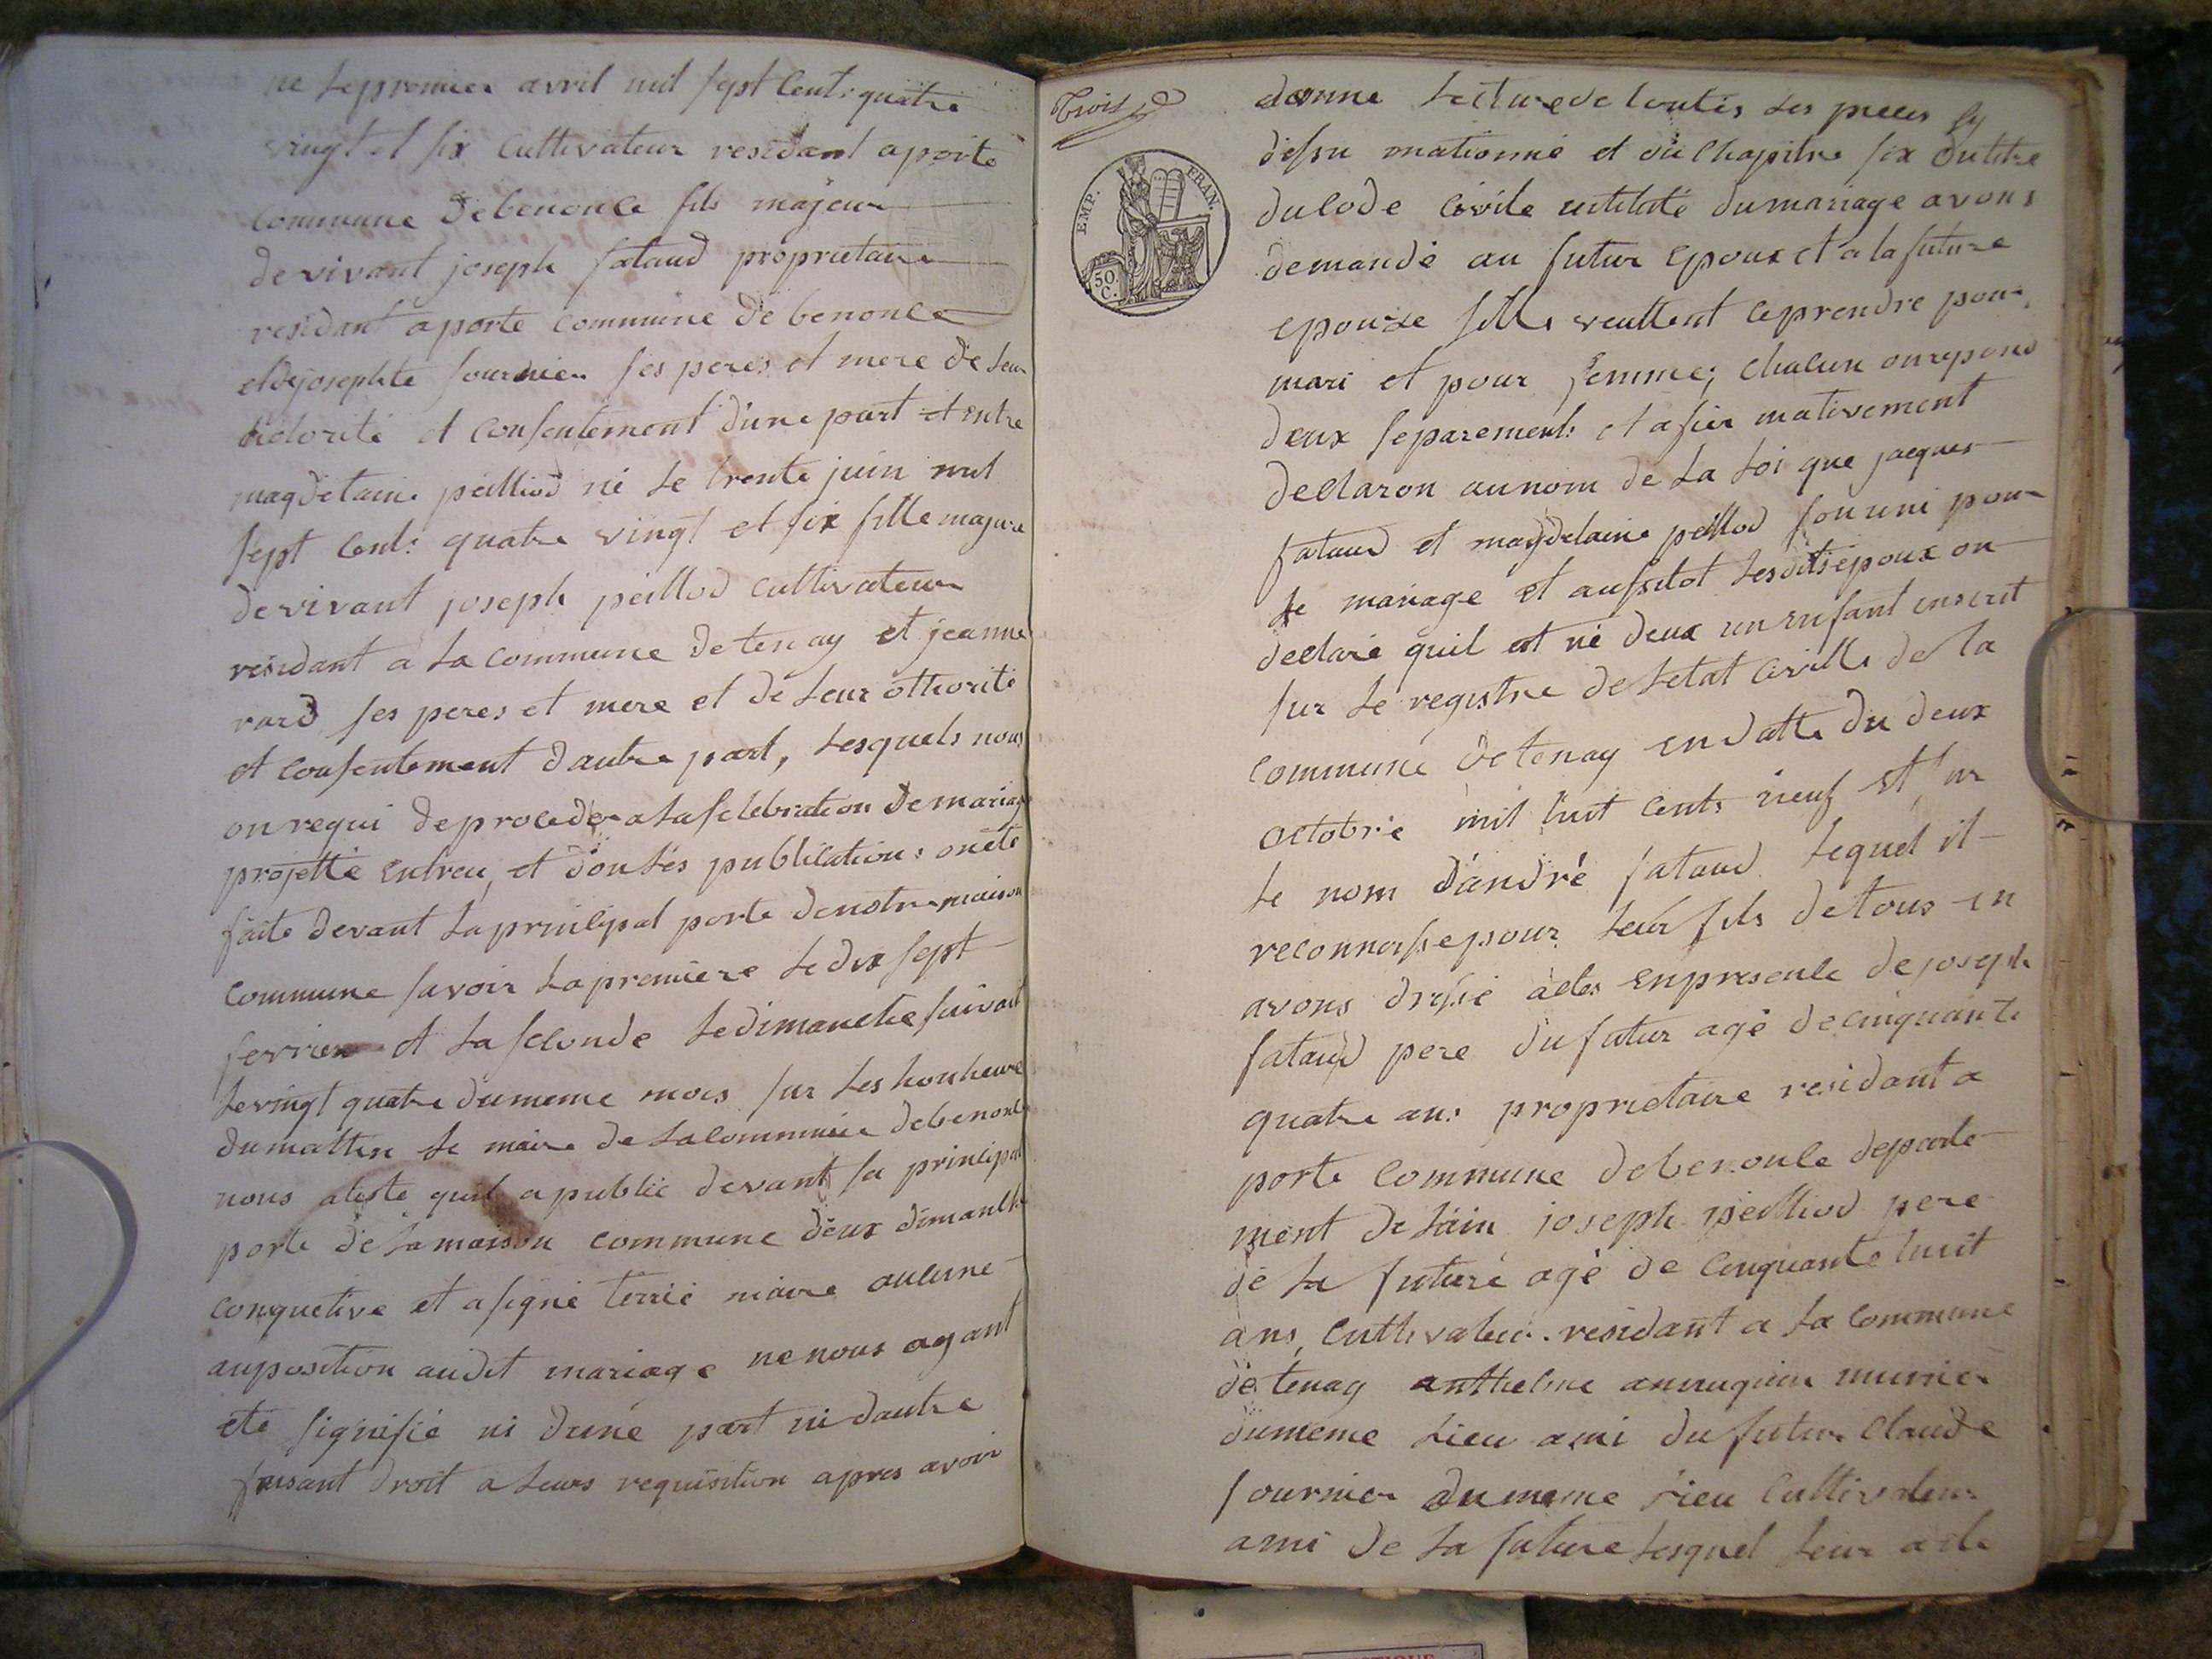 ne le premier avril mil sept cents quatre
vingt et six Cultivateur residant a porte
commune de benonce fils majeur
de vivant joseph fataud proprietaire
residant a porte commune de benonce
et de josephte fournier ses peres et mere de leur
otorité et consentement d'une part et entre
magdelaine peilliod né le trente juin mil
sept cents quatre vingt et six fille majure
de vivant joseph peillod cultivateur
residant a la commune de tenay et jeanne
rard ses peres et mere et de leur othorité
et consentement d'autre part, lesquels nous
on requi de proceder a la selebration de mariage
projetté entreu, et dont les publications on été
faite devant la principal porte de notre maison
commune savoir la premiere le dix sept
fevrier et la seconde le dimanche suivant
le vingt quatre du meme mois sur les honheure
du mattin le maire de la commune de benonce
nous ateste quil a publié devant la principal
porte de la maison commune deux dimanche
conquetive et a signé terrié maire aucune
auposition audit mariage ne nous ayant
eté signifié ni d'une part ni d'autre
faisant droit a leurs requisition apres avoir
Trois
EMP. FRAN.
50 C.
donne lecture de toutes les pieces sy
dessu mationné et du Chapitre six du titre
du code civile intitulé du mariage avons
demandé au futur epoux et a la future
epouze sille veullent ce prendre pour
mari et pour femme; chacun on repond
deux separements et afir mativement
declaron au nom de la loi que jacques
fataud et magdelaine peillod son uni pour
le mariage et aussitot lesdits epoux on
declaré quil est né deux un enfant inscrit
sur le registre de letat civille de la
commune de tenay en datte du deux
octobre mil huit cents neuf et sur
le nom d'andré fataud lequel il
reconnoisse pour leur fils de tous en
avons dressé actes en presence de joseph
fataud pere du futur agé de cinquante
quatre ans proprietaire residant a
porte commune de benonce departe
ment de lain joseph peilliod pere
de la future agé de cinquante huit
ans, cultivateur residant a la commune
de tenay anthelme meunier
du meme lieu ami du futur Claude
fournier du meme lieu cultivateur
ami de la future lesquel leur acte